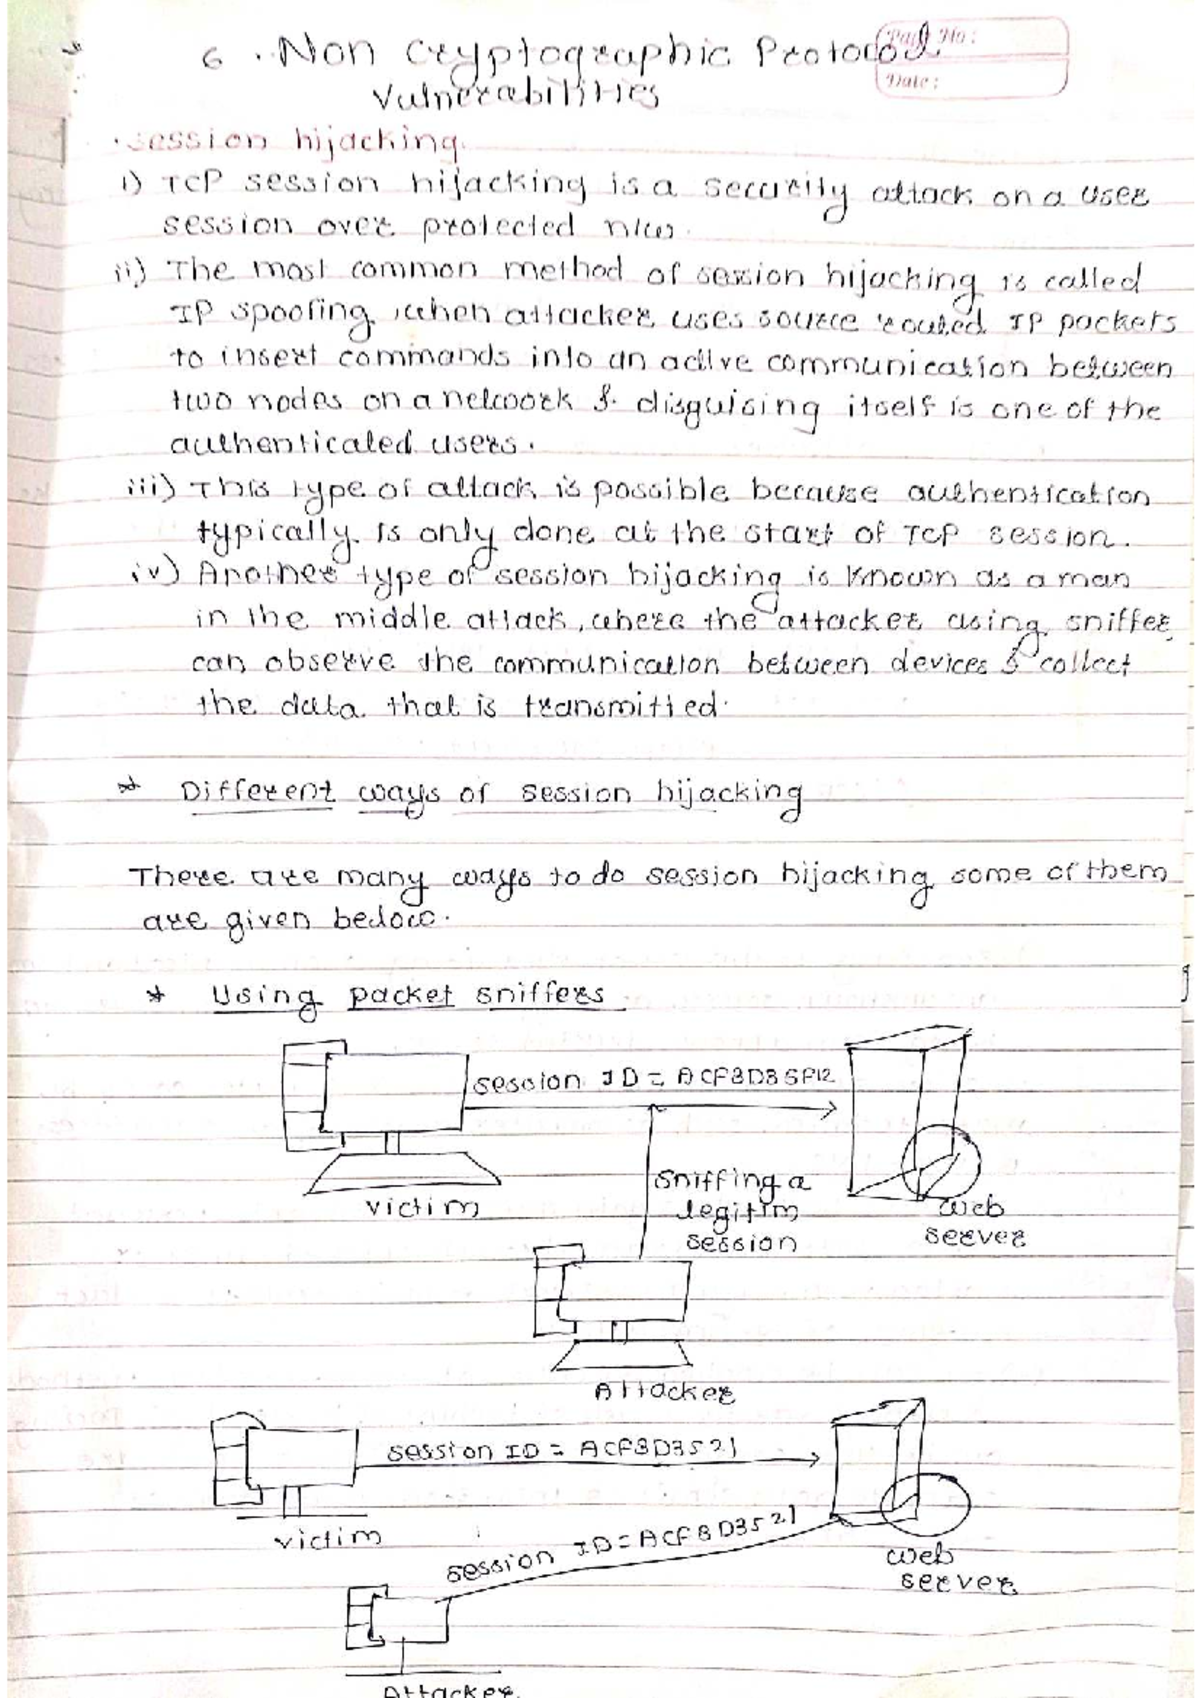 6. Non Cryptographic Protocol
Page No:
Date:
Vulnerabilities
• session hijacking.
i) TCP session hijacking is a security attack on a user
session over protected n/w.
ii) The most common method of session hijacking is called
IP spoofing, when attacker uses source routed IP packets
to insert commands into an active communication between
two nodes on a network & disguising itself is one of the
authenticated users.
iii) This type of attack is possible because authentication
typically is only done at the start of TCP session.
iv) Another type of session hijacking is known as a man
in the middle attack, where the attacker using sniffer
can observe the communication between devices & collect
the data that is transmitted.
* Different ways of session hijacking
There are many ways to do session hijacking some of them
are given below.
* Using packet sniffers
session ID = ACF3D35P12
victim
sniffing a
legitim
session
web
server
Attacker
session ID = ACF3D3521
victim
session ID = ACF8D3521
web
server
Attacker